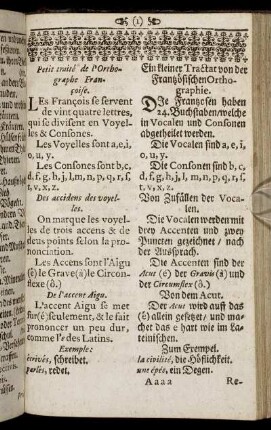 (1)
Petit traité de l'Ortho-
graphe Fran-
çoise.
LEs François se servent
de vint quatre lettres,
qui se divisent en Voyel-
les & Consones.
Les Voyelles sont a, e, i,
o, u, y.
Les Consones sont b, c,
d, f, g, h, j, l, m, n, p, q, r, s,
t, v, x, z.
Des accidens des voyel-
les.
On marque les voyel-
les de trois accens & de
deux points selon la pro-
nonciation.
Les Accens sont l'Aigu
(é) le Grave (à) le Circon-
flexe (ô.)
De l'accent Aigu.
L'accent Aigu se met
sur (é) seulement, & le fait
prononcer un peu dur,
comme l'e des Latins.
Exemple:
écrivés, schreibet.
parlés, redet.
Ein kleiner Tractat von der
Französischen Ortho-
graphie.
DIe Frantzosen haben
24. Buchstaben/ welche
in Vocalen und Consonen
abgetheilet werden.
Die Vocalen sind a, e, i,
o, u, y.
Die Consonen sind b, c,
d, f, g, h, j, l, m, n, p, q, r, s,
t, v, x, z.
Von Zufällen der Voca-
len.
Die Vocalen werden mit
drey Accenten und zwey
Puncten gezeichnet/ nach
der Aussprach.
Die Accenten sind der
Acut (é) der Gravis (à) und
der Circumflex (ô.)
Von dem Acut.
Der Acut wird auff das
(é) allein gesetzet/ und ma-
chet das e hart wie im La-
teinischen.
Zum Exempel.
la civilité, die Höflichkeit.
une épée, ein Degen.
Aaaa Re-